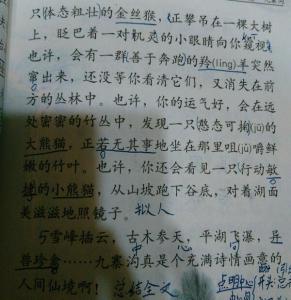 只体态粗壮的金丝猴，正攀吊在一棵大树
上，眨巴着一对机灵的小眼睛向你窥视。
也许，会有一群善于奔跑的羚(líng)羊突然
窜出来，还没等你看清它们，又消失在前
方的丛林中。也许，你的运气好，会在远
处密密的竹丛中，发现一只憨态可掬(jū)的
大熊猫，正若无其事地坐在那里咀(jǔ)嚼鲜
嫩的竹叶。也许，你还会看见一只行动敏
捷的小熊猫，从山坡跑下谷底，对着湖面
美滋滋地照镜子。拟人
5 雪峰插云，古木参天，平湖飞瀑，异
兽珍禽……九寨沟真是个充满诗情画意的
人间仙境啊！总结全文
点明中心